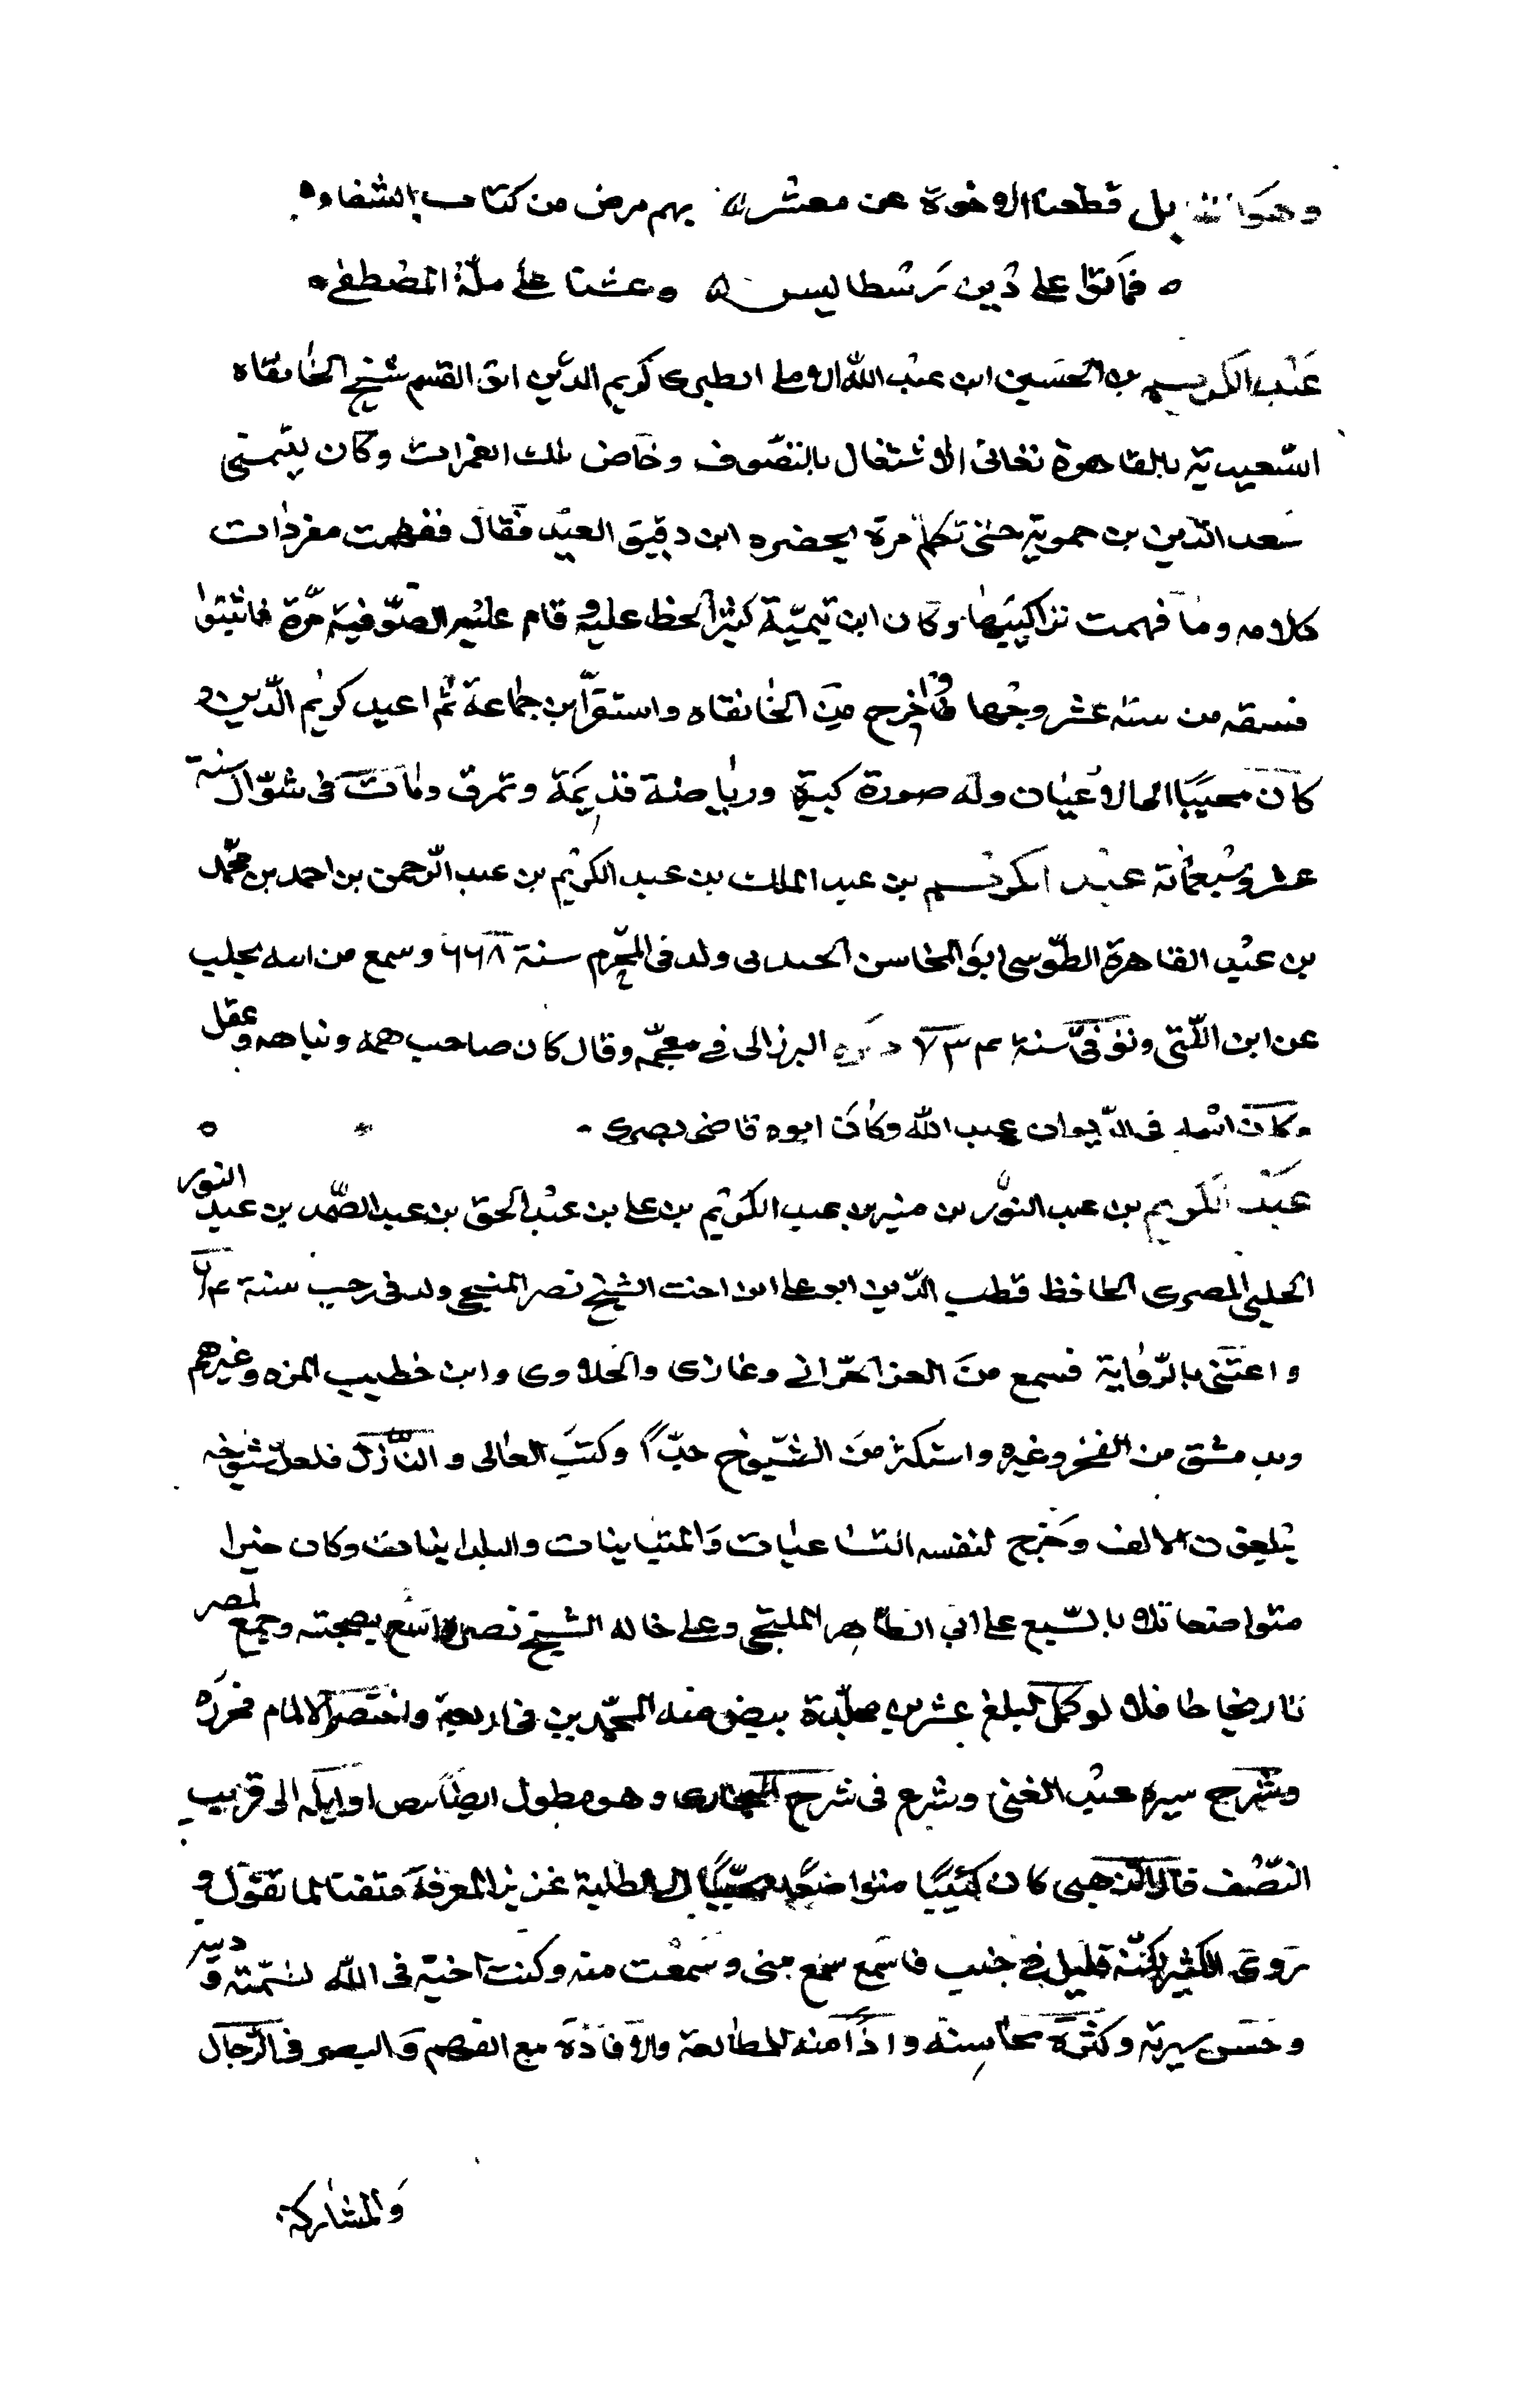 وهو القائل قطعنا الاخوة عن معشر ه بهم مرض من كتاب الشفاء ه
ه فماتوا على دين رسطاليس ه وعشنا على ملّة المصطفى ه
عبد الكريم بن الحسين ابن عبد الله الاملى الطبرى كريم الدين ابو القسم شيخ الخانقاه
السّعيدية بالقاهرة تعانى الاشتغال بالتصوف وخاض تلك الغمرات وكان ينتمى
سعد الدّين بن حموية حتى تكلم مرة بحضره ابن دقيق العيد فقال ففهمت مفردات
كلامه وما فهمت تراكيبها وكان ابن تيميّة كثير الحط عليه وقام عليه الصّوفية مرّة فاثبتوا
فسقه من ستة عشر وجها واخرج من الخانقاه واستقرّ ابن جماعة ثم اعيد كريم الدّين و
كان محببًا الى الاعيان وله صورة كبيرة ورياضة قديمة وتمرق ومات فى شوّال سنة
عشر وسبعمائة عبد الكريم بن عبد الملك بن عبد الكريم بن عبد الرّحمن بن احمد بن محمّد
بن عبد القاهرة الطّوسى ابو المحاسن ولد فى المحرم سنة ٦٦٨ وسمع من بحلب
عن ابن اللّتى وتوفىّ سنة ٧٣٤ ذكره البرزالى في معجمه وقال كان صاحب همه ونباهه وعقل
وكان اسمه فى الدّيوان عبد الله وكان ابوه قاضى بصرى -
عبد الكريم بن عبد النور بن منير بن عبد الكريم بن على بن عبد الحق بن عبد الصّمد بن عبد النور
الحلبى المصرى الحافظ قطب الدّين ابو على ابن اخت الشيخ نصر المنبجى ولد فى رجب سنة
واعتنى بالرّواية فسمع من العز الحرّاني وغازى والحلاوى وابن خطيب المزه وغيرهم
وبدمشق من الفخر وغيره واستكثر من الشّيوخ جدّاً وكتب العالى والنّازل فلعلّ شيوخه
يبلغون الالف وخرج لنفسه التساعيات والمتباينات والبلدانيات وكان خيرا
متواضعا تلا بالسّبع على ابى الطاهر المليجى وعلى خاله الشيخ نصر وانتفع بصحبته وجمع لمصر
تاريخا حافلا لو كمل لبلغ عشرين مجلّدة بيض منه المحمّدين فى اربعة واختصر الالمام فحرره
وشرح سيره عبد الغنى وشرع فى شرح البخارى وهو مطول ايضا بيض اوايله الى قريب
النّصف قال الذهبى كان كيّسًا متواضعًا محبّبًا الى الطلبة غزير المعرفة متقنا لما يقول و
روى الكثير لكنّه قليل فى جنب ما سمع سمع منى وسمعت منه وكنت احبّه فى الله لسمته ودينه
وحسن سيرته وكثرة محاسنه وادامته للمطالعة والافادة مع الفهم والبصر فى الرّجال
والمشاركة